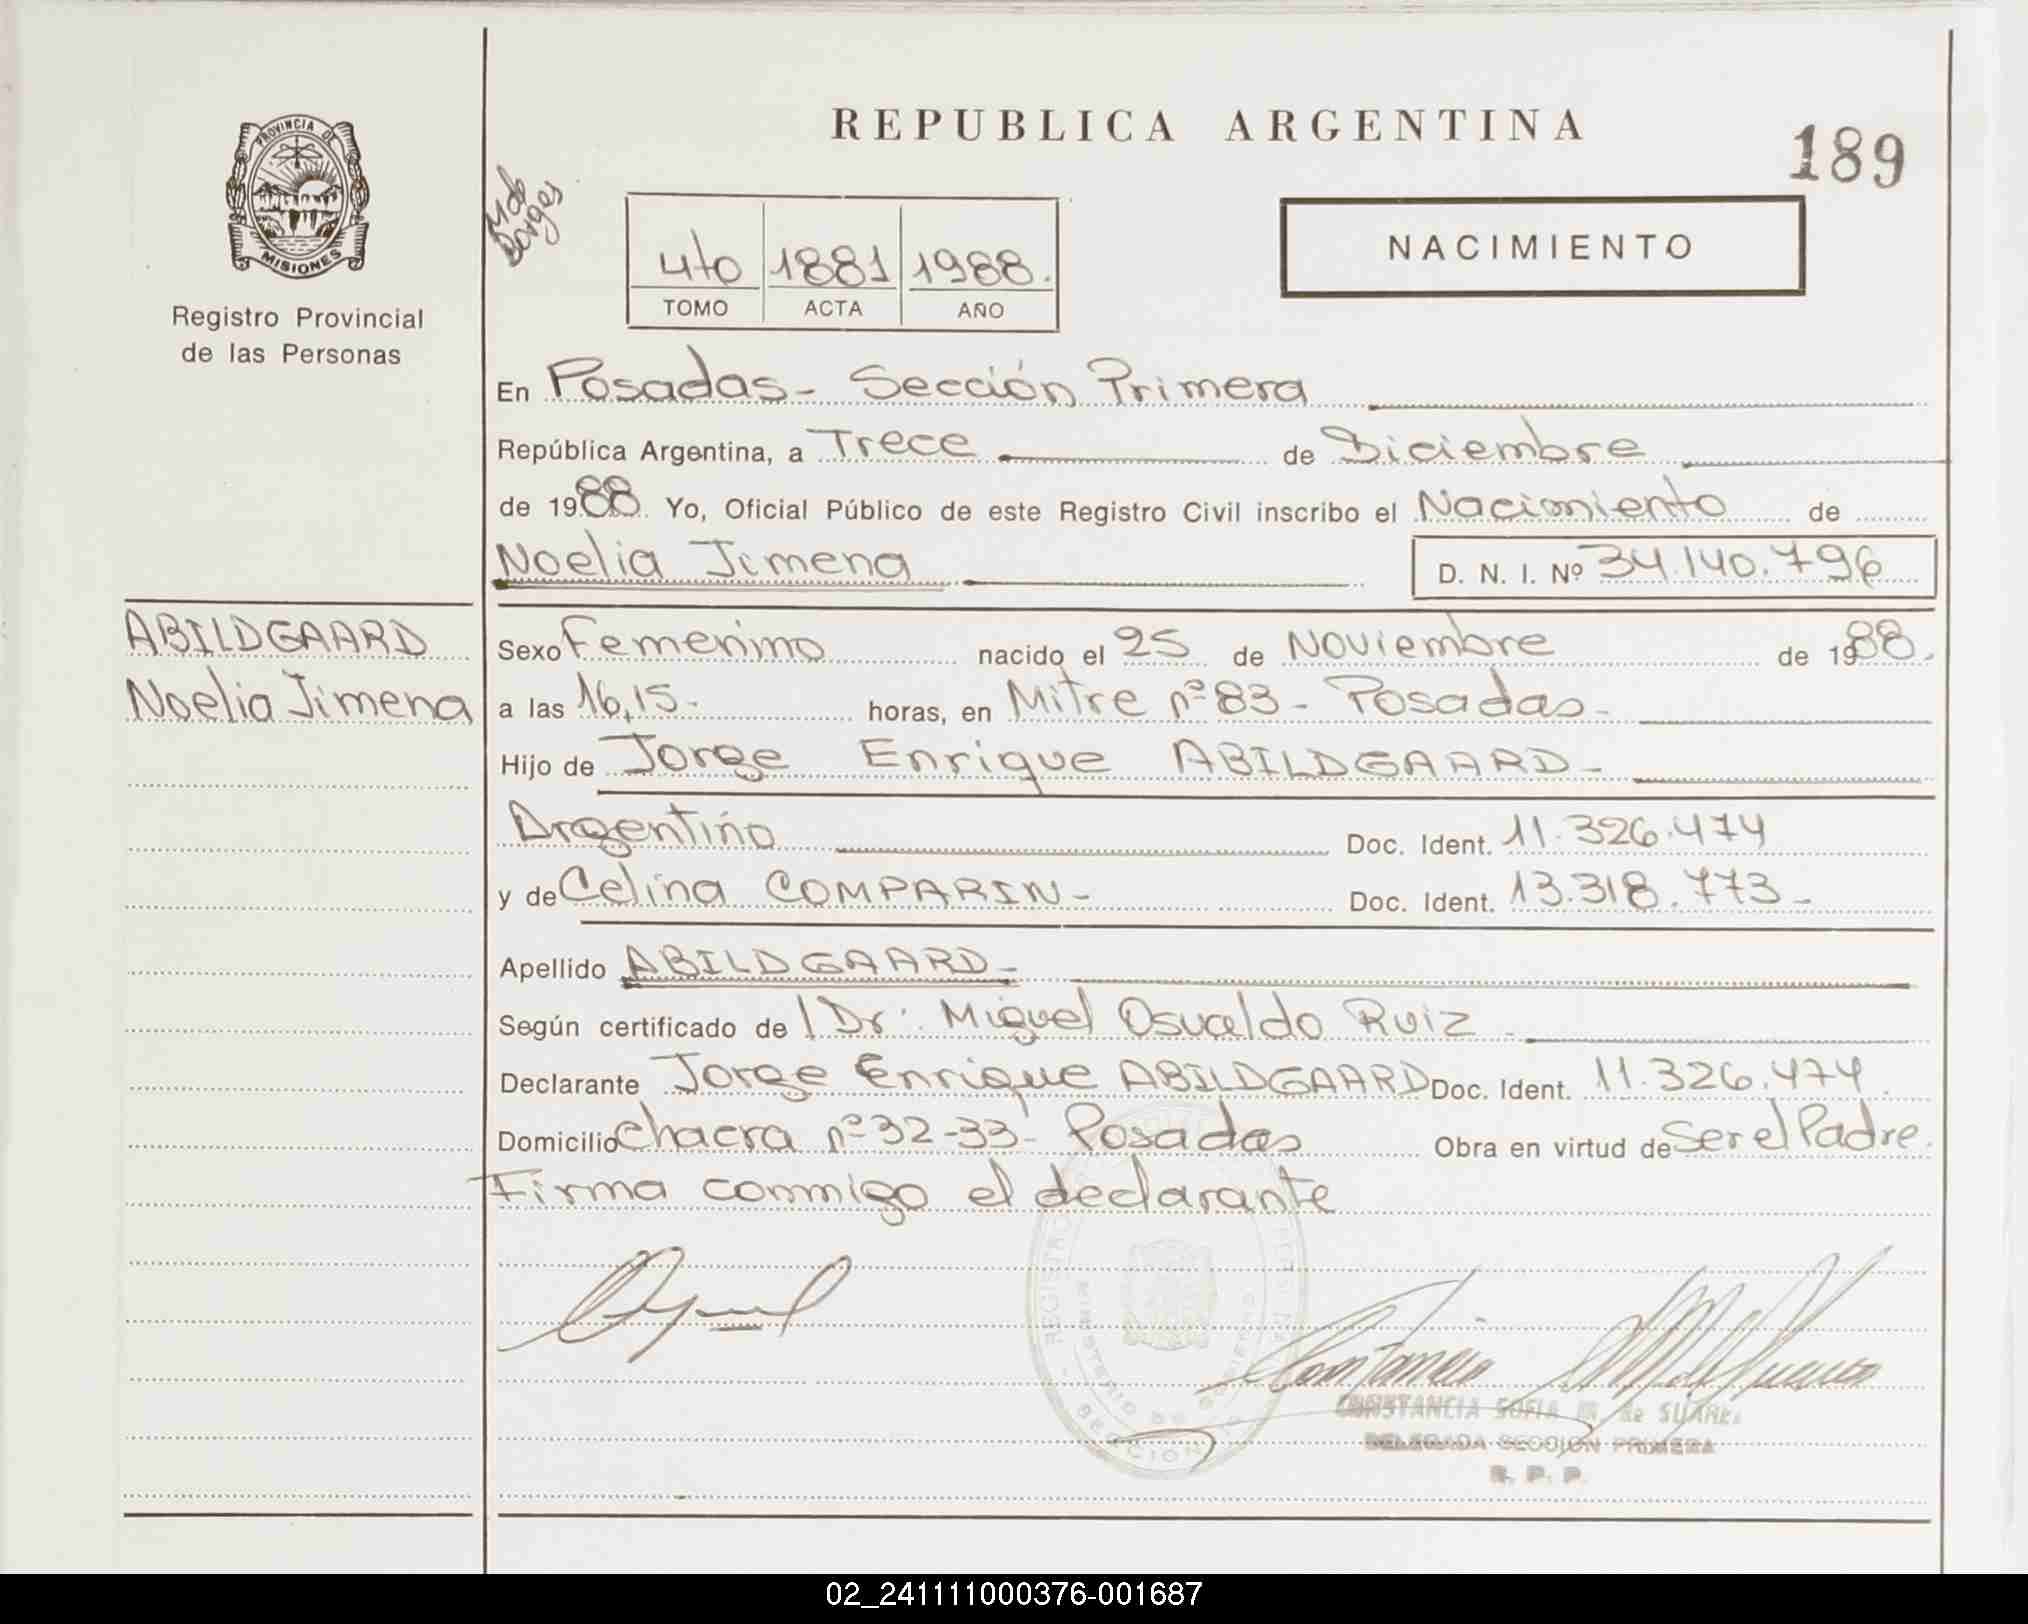 REPUBLICA ARGENTINA
189
PROVINCIA DE
MISIONES
Registro Provincial
de las Personas
M de
Borges
4to 1881 1988.
TOMO ACTA AÑO
NACIMIENTO
En Posadas - Sección Primera
República Argentina, a Trece de Diciembre
de 1988. Yo, Oficial Público de este Registro Civil inscribo el Nacimiento de
Noelia Jimena D. N. I. Nº 34.140.796
ABILDGAARD
Noelia Jimena
Sexo Femenino nacido el 25 de Noviembre de 1988.
a las 16,15- horas, en Mitre nº 83 - Posadas -
Hijo de Jorge Enrique ABILDGAARD -
Argentino Doc. Ident. 11.326.474
y de Celina COMPARIN - Doc. Ident. 13.318.773 -
Apellido ABILDGAARD -
Según certificado de / Dr. Miguel Osvaldo Ruiz
Declarante Jorge Enrique ABILDGAARD Doc. Ident. 11.326.474.
Domicilio Chacra nº 32-33 - Posadas Obra en virtud de Ser el Padre.
Firma conmigo el declarante
CONSTANCIA SOFIA M. de SUAREZ
DELEGADA SECCION PRIMERA
R. P. P.
02_241111000376-001687